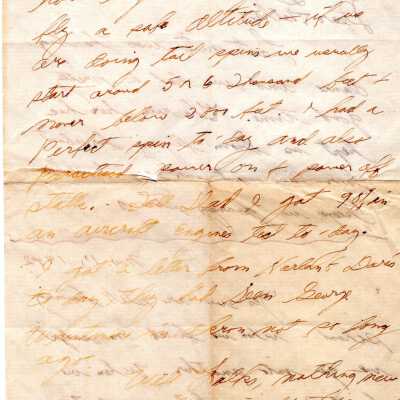 fly a safe altitude - if we
are doing tail spins we usually
start around 5 or 6 thousand feet &
never below 2500 feet. I had a
Perfect spin to-day and also
practiced power on & power off
stalls. Tell Dad I got 98% in
an aircraft Engines test to-day.
I got a letter from
they had seen George
not so long
ago.
Well folks, nothing new